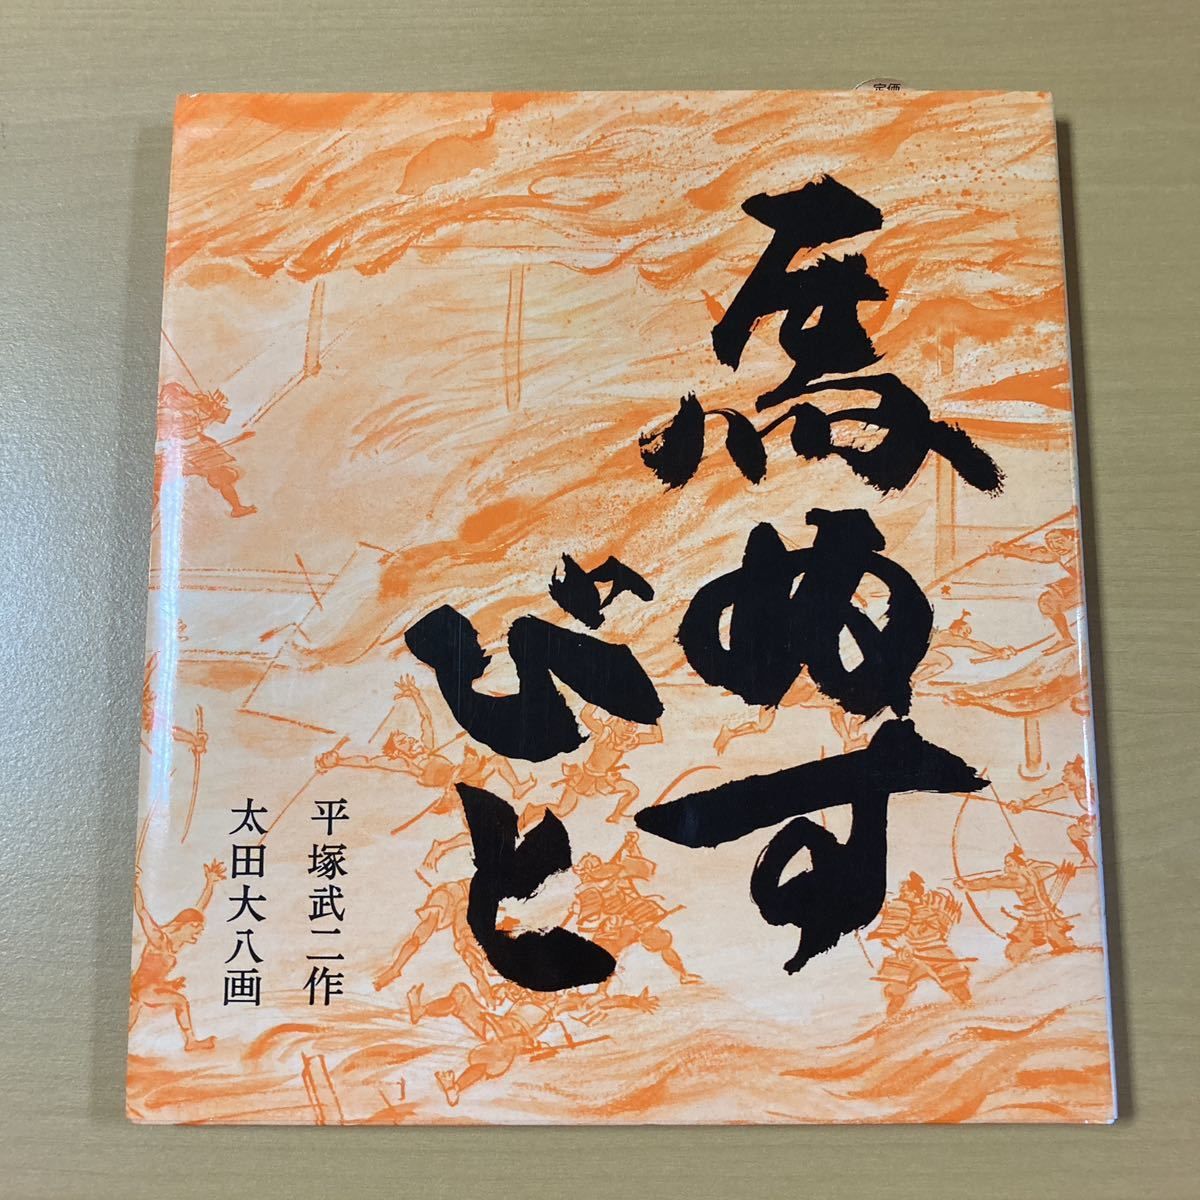 定価
馬ぬす
びと
平塚武二作
太田大八画